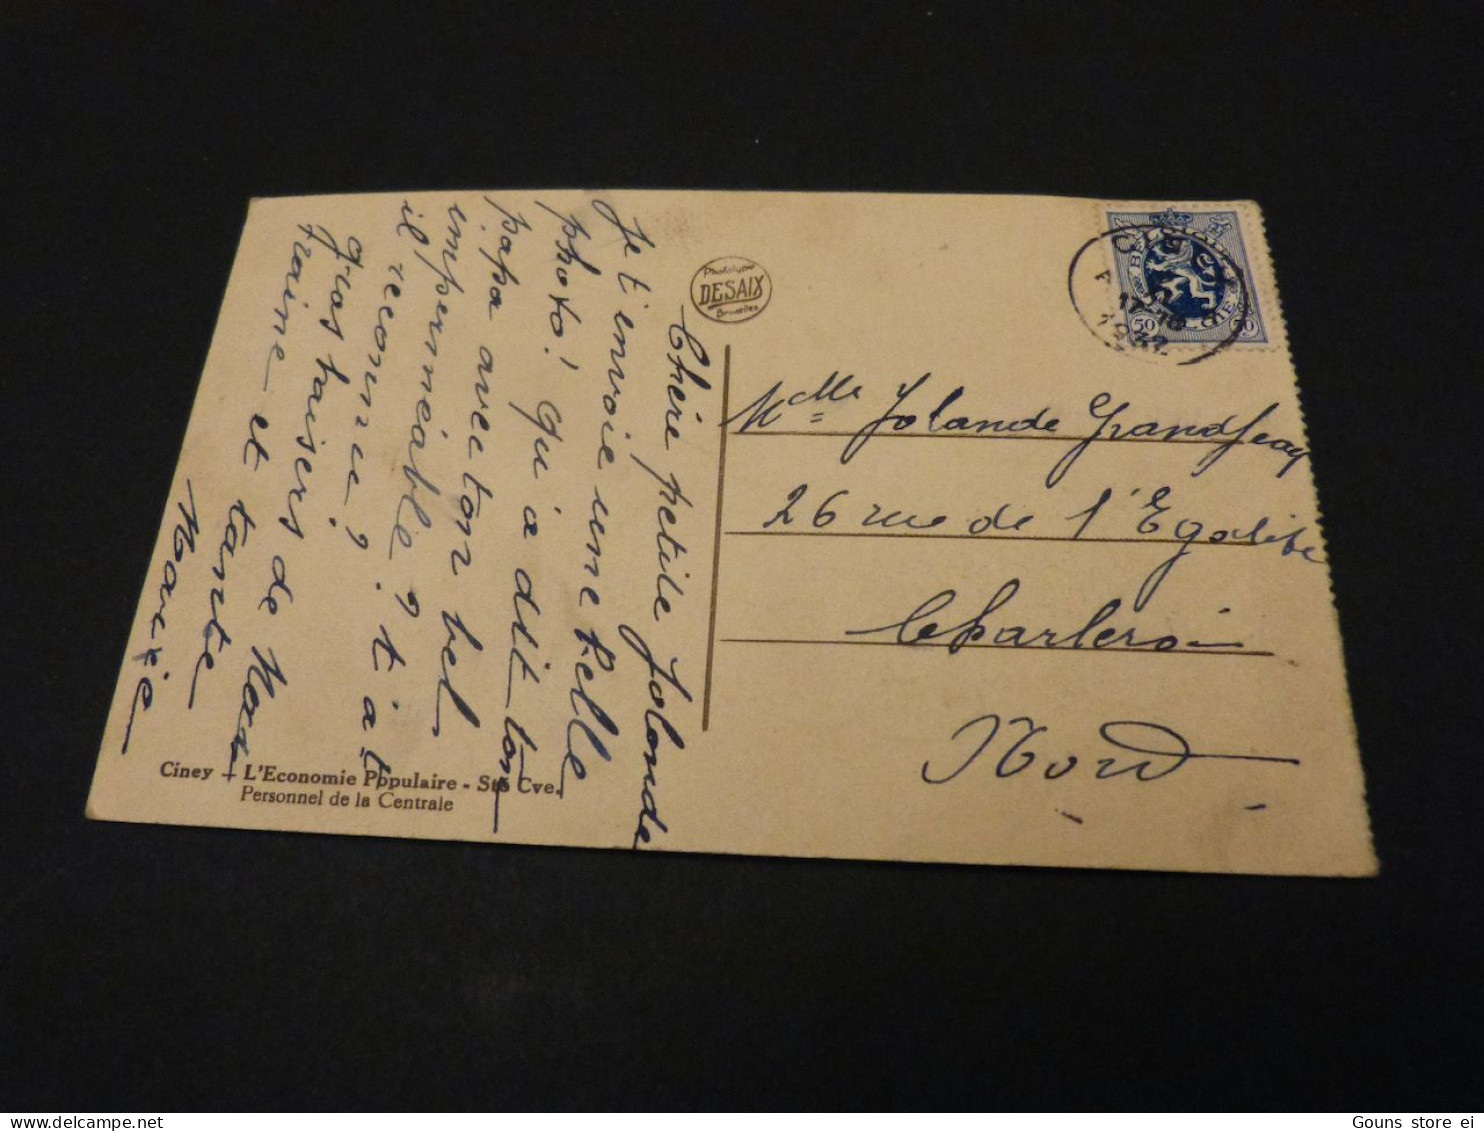 Chère petite Jolande
je t'envoie une belle
photo! qu'a dit ton
papa avec ton bel
imperméable? t'a t
il reconnue?
gros baisers de Non
fraine et tante
Marie
Phototypie
DESAIX
Bruxelles
CINEY
12-13
BELGIQUE
BELGIE
50
50
Mlle Jolande Grandjean
26 rue de l'Egalité
Charleroi
Nord
Ciney - L'Economie Populaire - Sté Cve.
Personnel de la Centrale
Gouns store ei